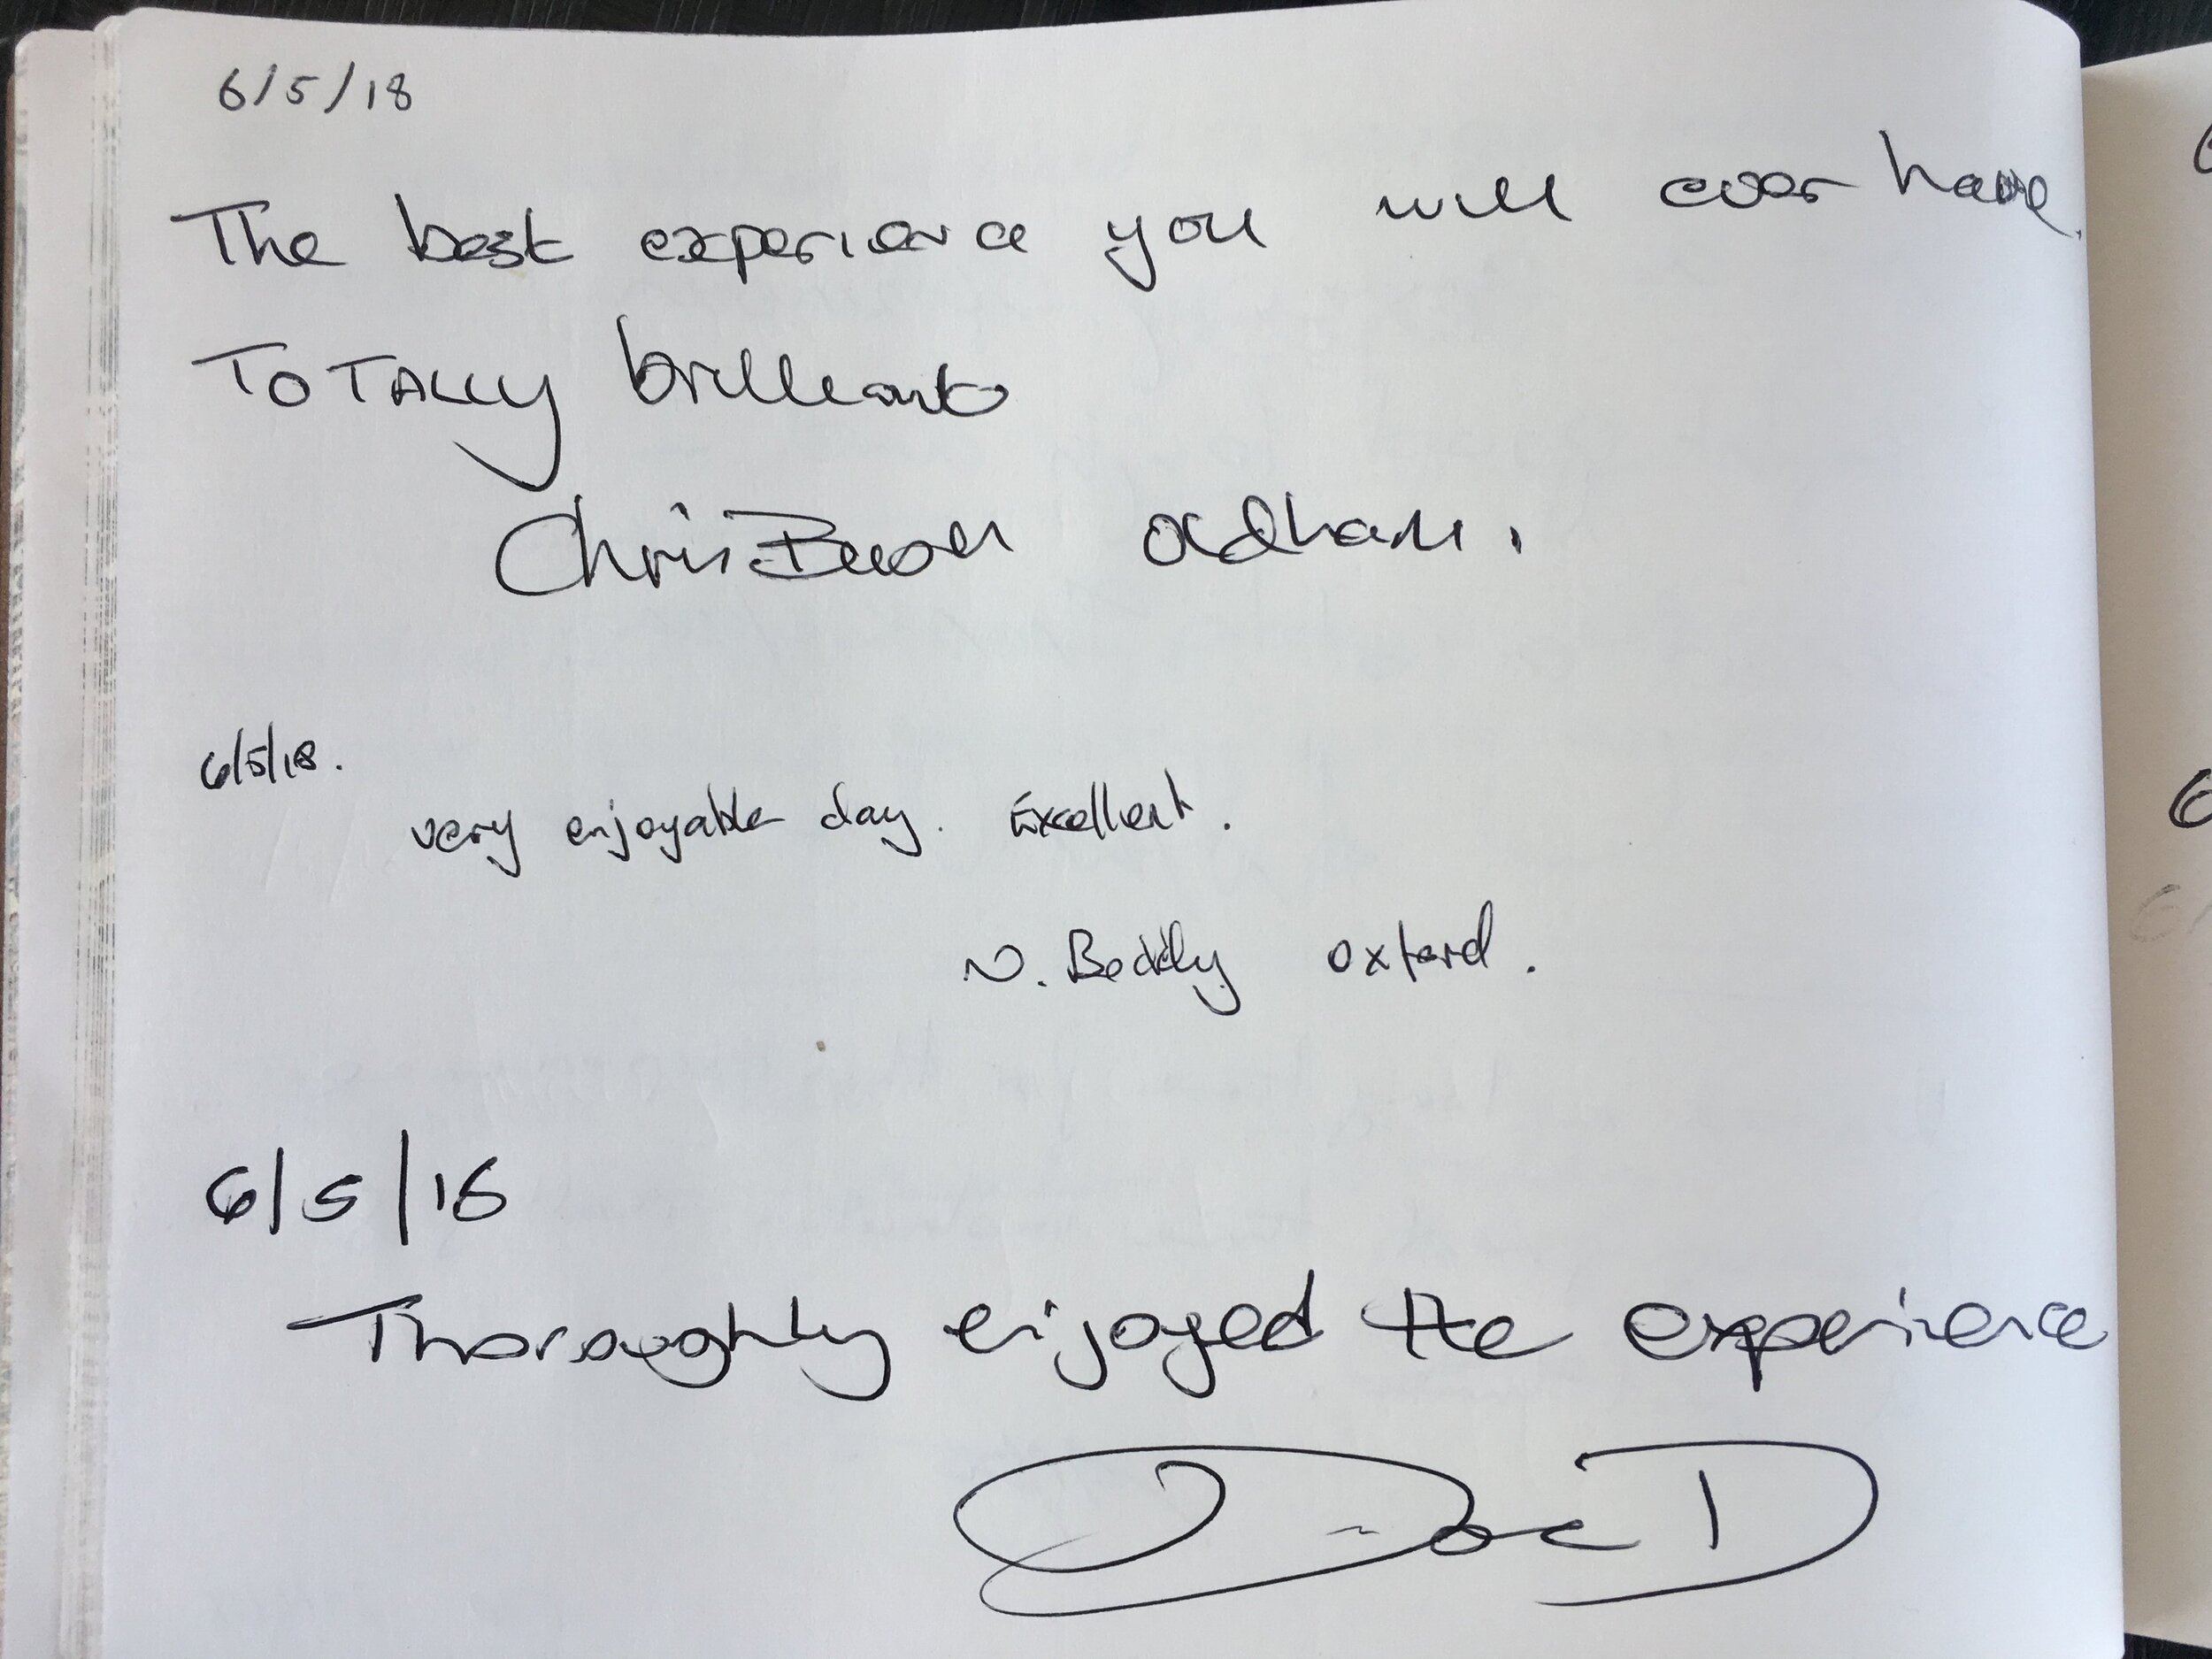 6/5/18
The best experience you will ever have.
TOTALLY brilliant
Chris Oldham.
6/5/18.
very enjoyable day. Excellent.
N. Boddy oxford.
6/5/18
Thoroughly enjoyed the experience